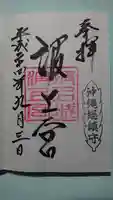 奉拝
沖縄総鎮守
波上宮
平成 年九月三日